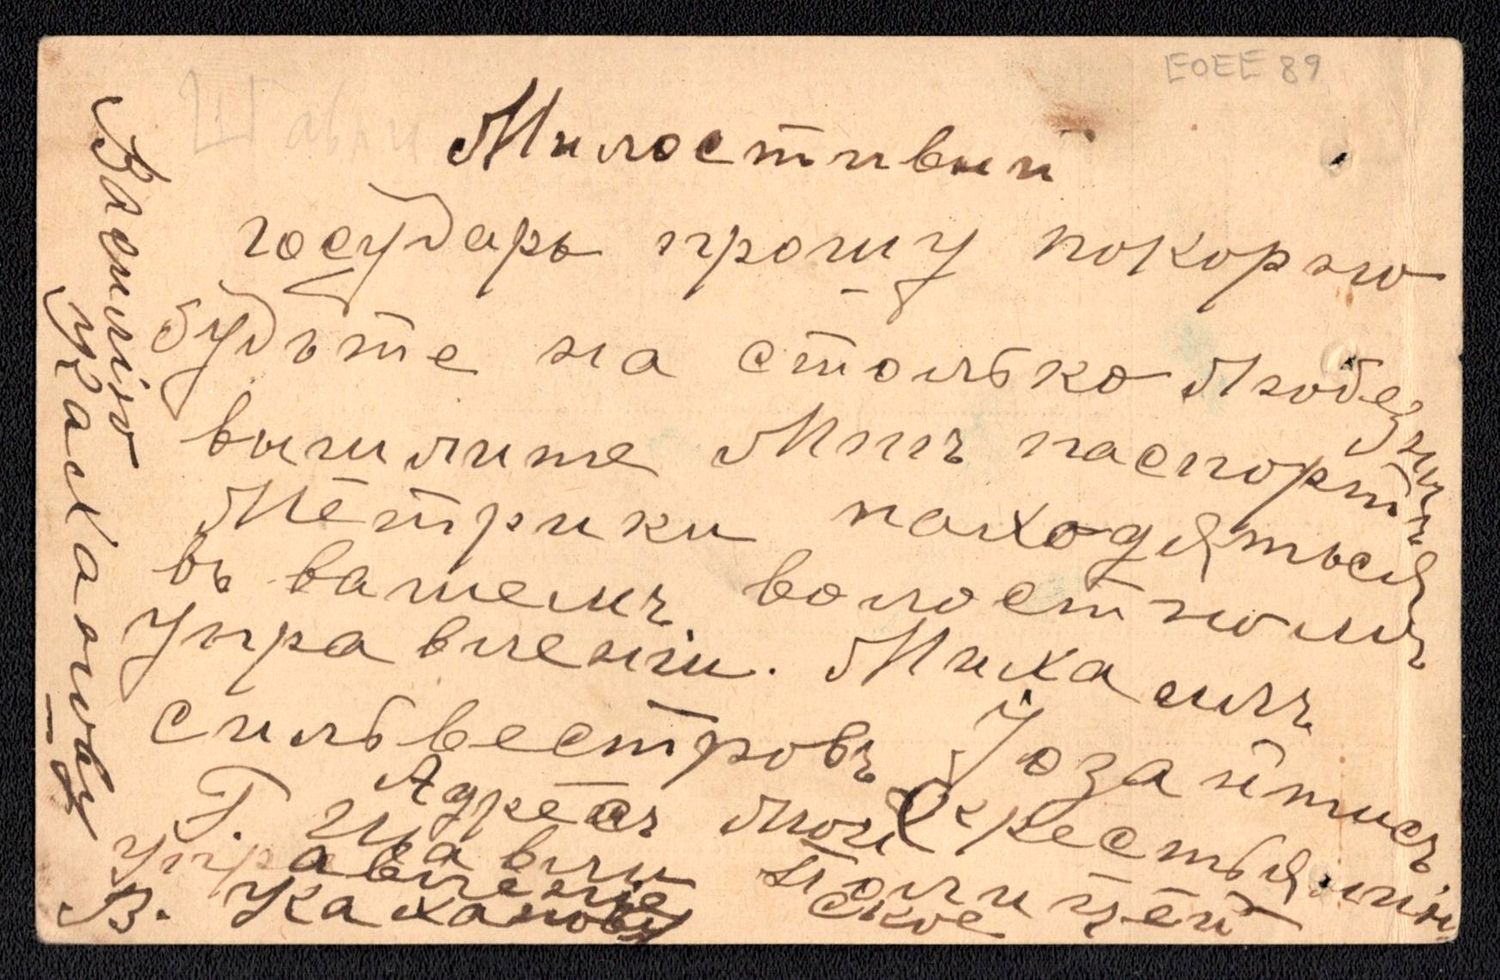 EOEE 89
Шавли
Милостивии
государь прошу покорно
будъте на столько Любезни
вышлите Мнъ паспортъ
Метрики находяться
въ вашемъ волостномъ
Управленіи. Михаилъ
сильвестровъ Іозайтисъ
Адресъ мой крестьянин
Г. Шавли Полицей
управленіе ское
В. Каханову
Василію
Каханову